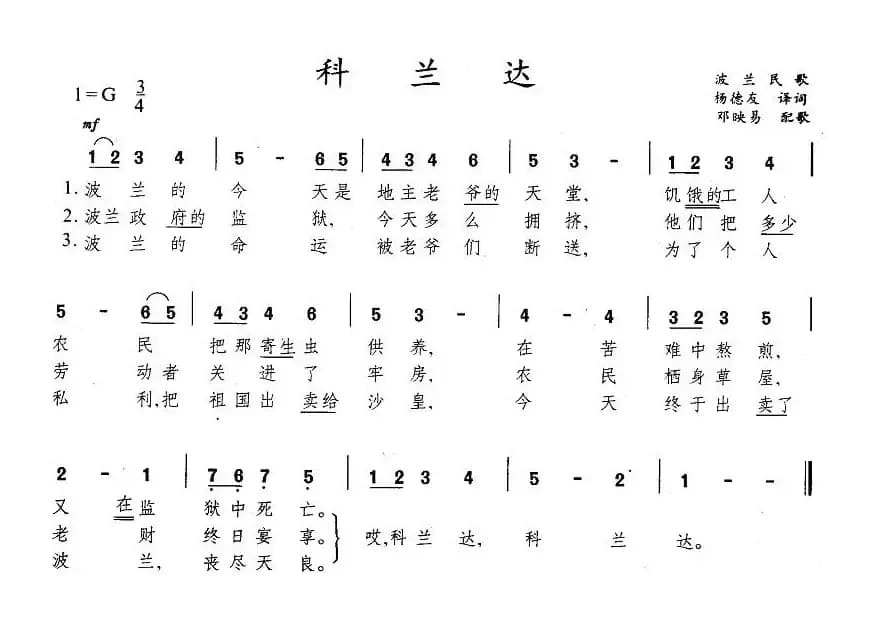 科 兰 达
1=G 3/4
波 兰 民 歌
杨德友 译词
邓映易 配歌
mf
1 2 3 4 | 5 - 6 5 | 4 3 4 6 | 5 3 - | 1 2 3 4 |
1. 波 兰 的 今 天是 地主老 爷的 天 堂, 饥饿的工 人
2. 波兰 政 府的 监 狱, 今 天 多 么 拥 挤, 他们 把 多少
3. 波 兰 的 命 运 被老爷 们 断 送, 为了 个 人
5 - 6 5 | 4 3 4 6 | 5 3 - | 4 - 4 | 3 2 3 5 |
农 民 把那寄生虫 供 养, 在 苦 难中熬 煎,
劳 动者 关 进 了 牢 房, 农 民 栖身草 屋,
私 利,把 祖国出 卖给 沙 皇, 今 天 终于出 卖了
2 - 1 | 7 6 7 5 | 1 2 3 4 | 5 - 2 | 1 - - ‖
又 在监 狱中死 亡。
老 财 终日宴 享。 哎,科 兰 达, 科 兰 达。
波 兰, 丧尽天 良。